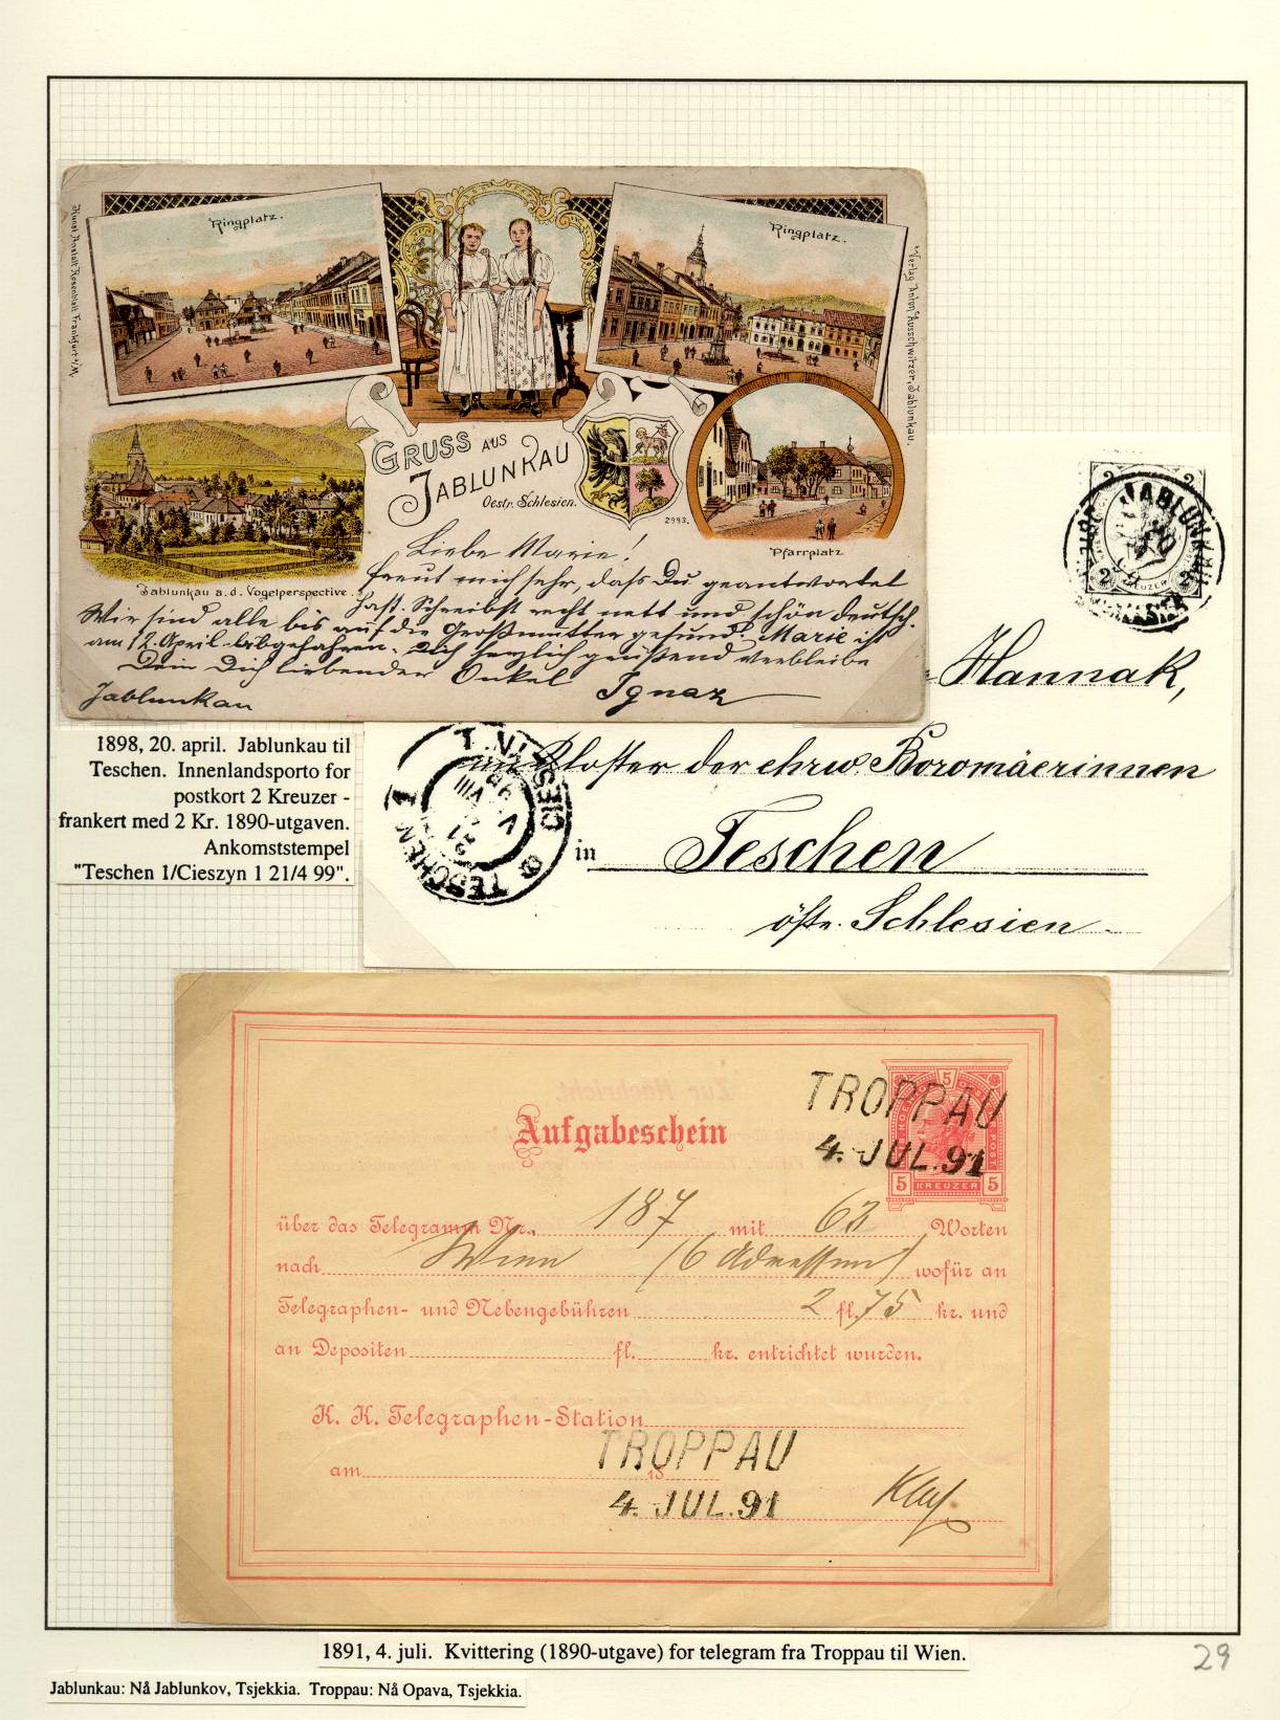 Ringplatz.
Ringplatz.
Kunst Anstalt Rosenblatt Frankfurt a/M.
Verlag Anton Ausschwitzer, Jablunkau.
GRUSS AUS
JABLUNKAU
Oestr. Schlesien.
2993.
Pfarrplatz
Jablunkau a.d. Vogelperspective.
Liebe Marie!
freut mich sehr, dass Du geantwortet
hast. Schreibst recht nett und schön deutsch.
Wir sind alle bis auf die Großmutter gesund. Marie ist
am 12. April abgefahren. Dich herzlich grüßend verbleibe
Dein Dich liebender Onkel Ignaz
Jablunkau
2 2
JABLUNKAU
2 KREUZER 2
Hannak,
im Kloster der ehrw. Boromäerinnen
in Teschen
östr. Schlesien
TESCHEN 1
1898, 20. april. Jablunkau til
Teschen. Innenlandsporto for
postkort 2 Kreuzer -
frankert med 2 Kr. 1890-utgaven.
Ankomststempel
"Teschen 1/Cieszyn 1 21/4 99".
5
TROPPAU
4. JUL. 91
5 KREUZER 5
Aufgabeschein
über das Telegramm Nr. 187 mit 62 Worten
nach Wien (6 Adressen) wofür an
Telegraphen- und Nebengebühren 2 fl. 75 kr. und
an Depositen fl. kr. entrichtet wurden.
K. K. Telegraphen-Station
TROPPAU
am 18
4. JUL. 91
1891, 4. juli. Kvittering (1890-utgave) for telegram fra Troppau til Wien.
29
Jablunkau: Nå Jablunkov, Tsjekkia. Troppau: Nå Opava, Tsjekkia.